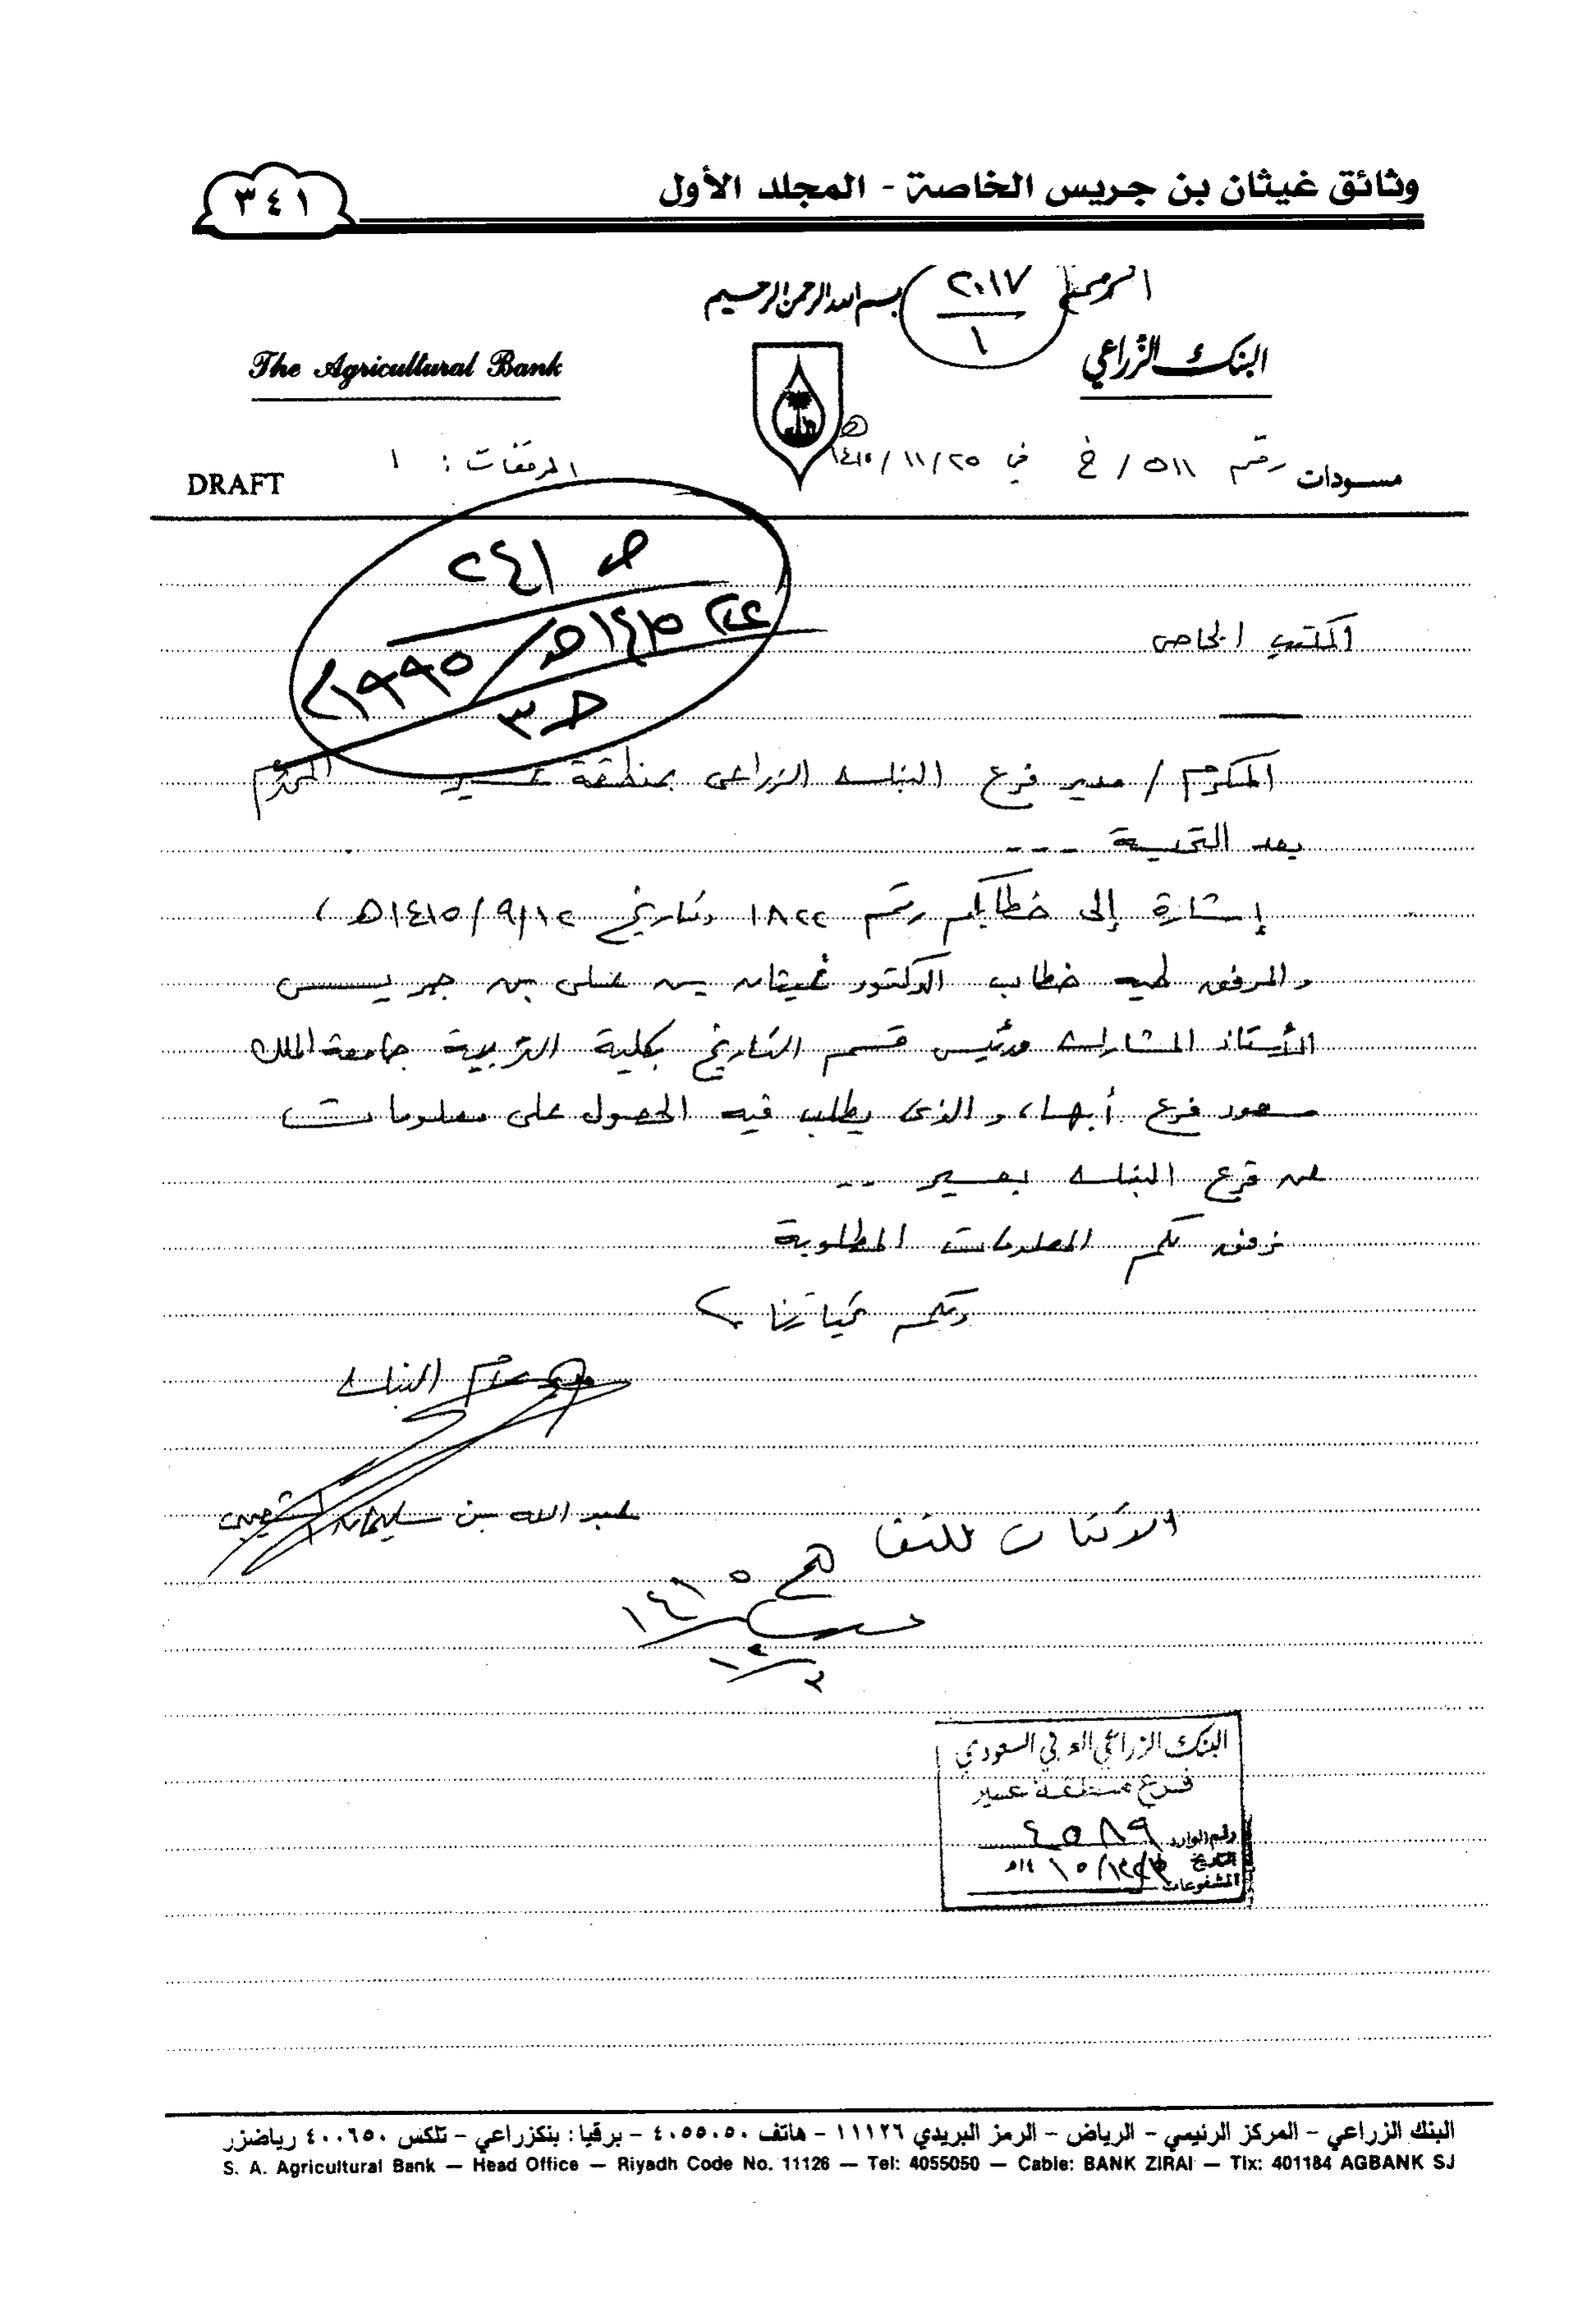 وثائق غيثان بن جريس الخاصة - المجلد الأول
٣٤١
٢٠١٧
١
بسم الله الرحمن الرحيم
البنك الزراعي
The Agricultural Bank
مسودات رقم ٥١١/خ في ١٤١٥/١١/٢٥هـ
المرفقات: ١
DRAFT
ص ٢٤١
عام ١٤١٥هـ/١٩٩٥م
ص ٣
المكتب الخاص
المكرم / مدير فرع البنك الزراعي بمنطقة عسير المحترم
بعد التحية ---
إشارة إلى خطابكم رقم ١٨٢٢ وتاريخ ١٤١٥/٩/١٢هـ،
والمرفق طيه خطاب الدكتور غيثان بن علي بن جريس
الأستاذ المشارك ورئيس قسم التاريخ بكلية التربية جامعة الملك
سعود فرع أبها، والذي يطلب فيه الحصول على معلومات
عن فرع البنك بعسير --
نرفق لكم المعلومات المطلوبة
ولكم تحياتنا
مدير عام البنك
عبد الله بن سليمان
١٤١٥
١٢/٢
البنك الزراعي العربي السعودي
فرع منطقة عسير
رقم الوارد ٤٥٨٩
التاريخ
المشفوعات
البنك الزراعي – المركز الرئيسي – الرياض – الرمز البريدي ١١١٢٦ – هاتف ٤٠٥٥٠٥٠ – برقيا: بنكزراعي – تلكس ٤٠٠٦٥٠ رياضزر
S. A. Agricultural Bank — Head Office — Riyadh Code No. 11126 — Tel: 4055050 — Cable: BANK ZIRAI — Tlx: 401184 AGBANK SJ